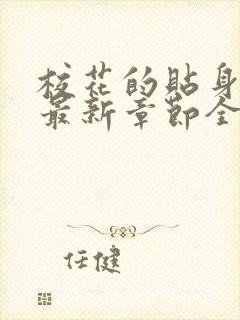 校花的贴身
最新章节全
任健